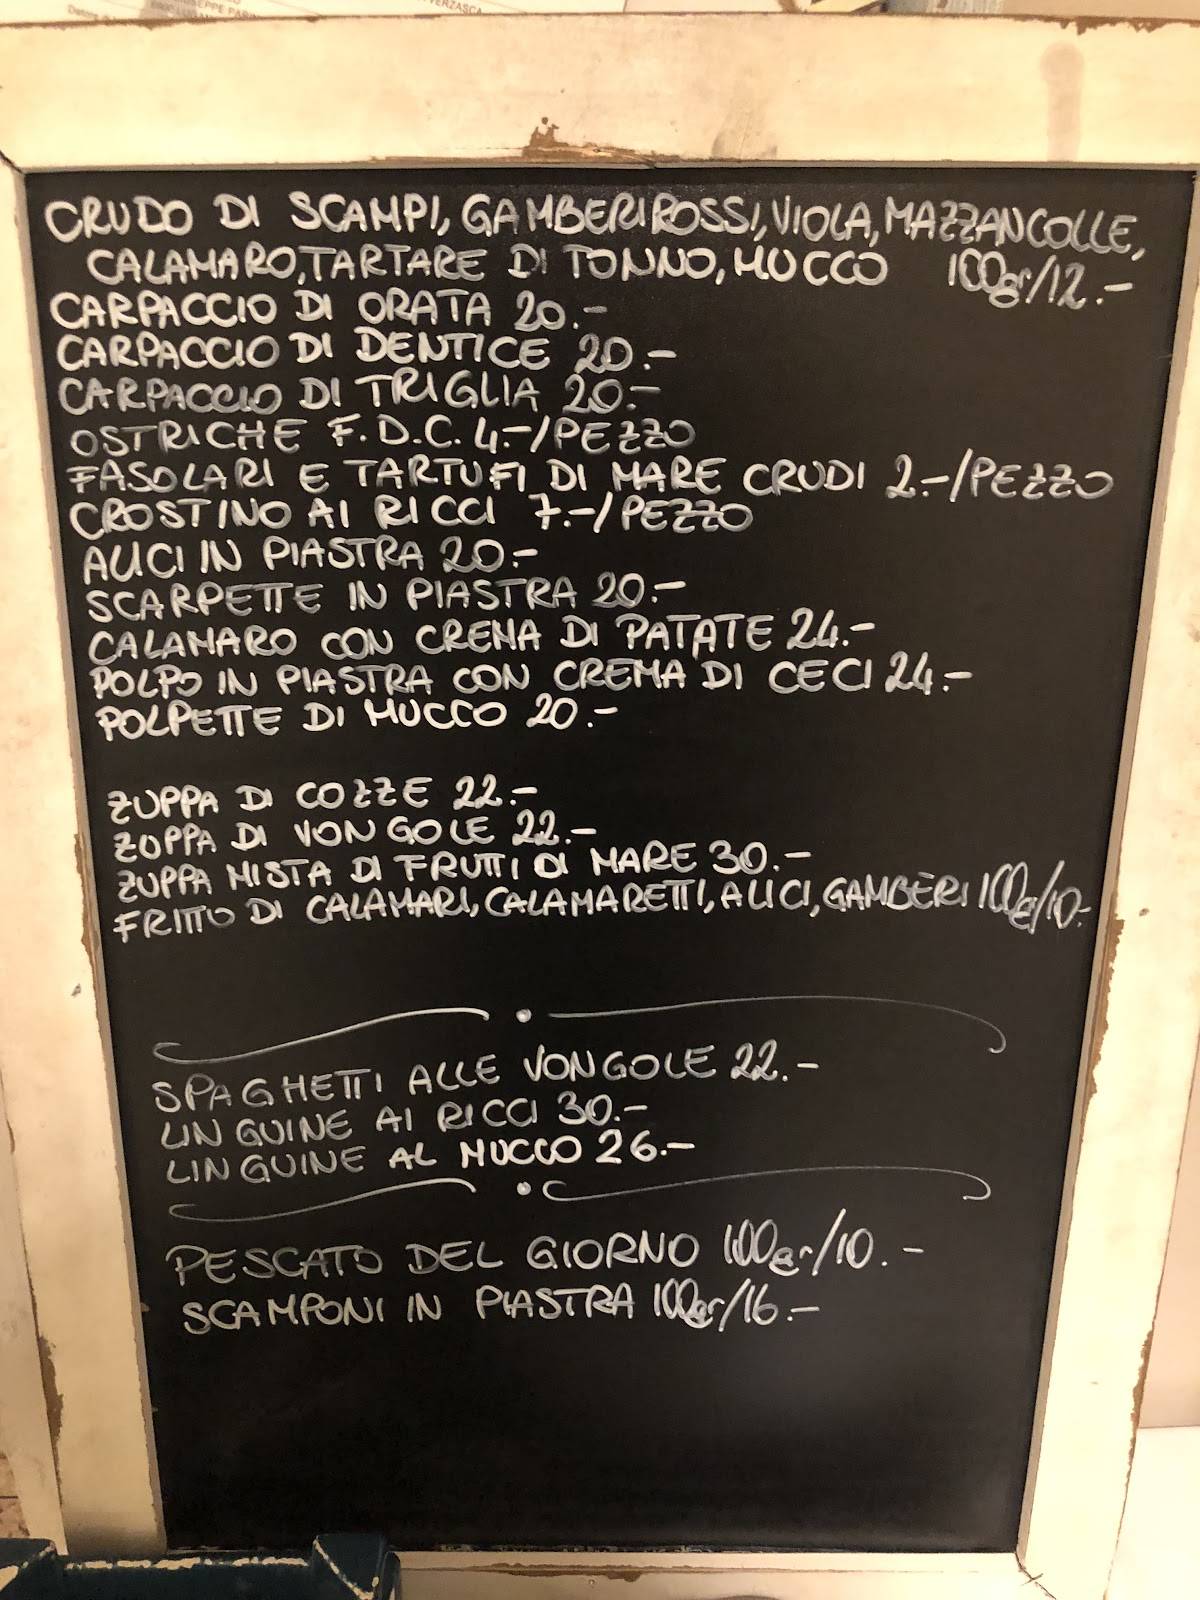 VERZASCA
CRUDO DI SCAMPI, GAMBERI ROSSI, VIOLA, MAZZANCOLLE,
CALAMARO, TARTARE DI TONNO, MUCCO 100gr/12.-
CARPACCIO DI ORATA 20.-
CARPACCIO DI DENTICE 20.-
CARPACCIO DI TRIGLIA 20.-
OSTRICHE F.D.C. 4.-/PEZZO
FASOLARI E TARTUFI DI MARE CRUDI 2.-/PEZZO
CROSTINO AI RICCI 7.-/PEZZO
ALICI IN PIASTRA 20.-
SCARPETTE IN PIASTRA 20.-
CALAMARO CON CREMA DI PATATE 24.-
POLPO IN PIASTRA CON CREMA DI CECI 24.-
POLPETTE DI MUCCO 20.-
ZUPPA DI COZZE 22.-
ZUPPA DI VONGOLE 22.-
ZUPPA MISTA DI FRUTTI DI MARE 30.-
FRITTO DI CALAMARI, CALAMARETTI, ALICI, GAMBERI 100g/10.-
SPAGHETTI ALLE VONGOLE 22.-
LINGUINE AI RICCI 30.-
LINGUINE AL MUCCO 26.-
PESCATO DEL GIORNO 100gr/10.-
SCAMPONI IN PIASTRA 100gr/16.-